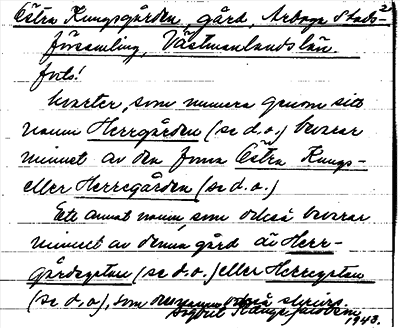 Östra Kungsgården, gård, Arboga Stads-²
församling, Västmanlands län.
forts!
kvarter, som numera genom sitt
namn Herrgården (se d.o.) bevarar
minnet av den forna Östra Kungs-
eller Herregården (se d.o.)
Ett annat namn, som också bevarar
minnet av denna gård är Herr-
gårdsgatan (se d.o.) eller Herregatan
(se d.o), som den också skrives.
1943.